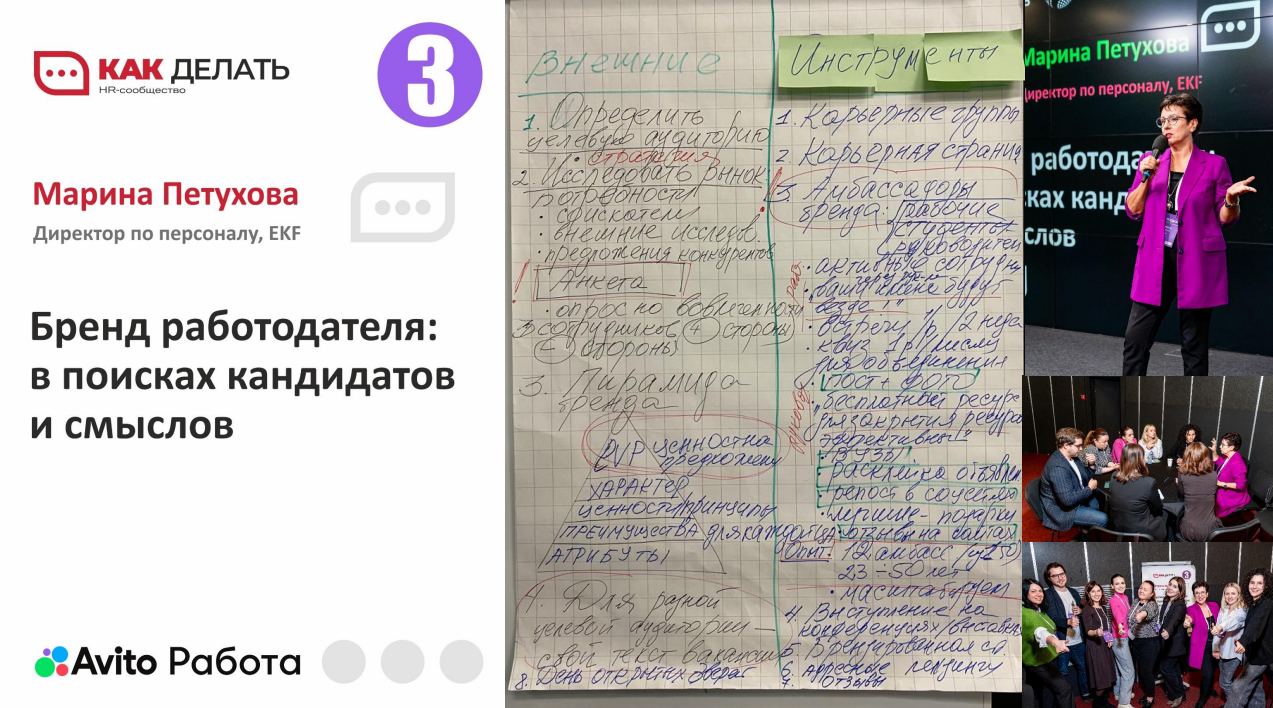 КАК ДЕЛАТЬ
HR-сообщество
3
Марина Петухова
Директор по персоналу, EKF
Бренд работодателя:
в поисках кандидатов
и смыслов
Avito Работа
Внешние
1. Определить
целевую аудиторию
• стратегия
2. Исследовать рынок
потребности
• соискатели
• внешние исследов.
• предложения конкурентов
Анкета
• опрос по вовлеченности
сотрудников (+) стороны
(–) стороны
3. Пирамида
бренда
ценностна
предложени
ХАРАКТЕР
ЦЕННОСТИ/принципы
ПРЕИМУЩЕСТВА для каждой ЦА
АТРИБУТЫ
4. Для разной
целевой аудитории –
свой текст вакансии
8. День открытых дверей
Инструменты
1. Карьерные группы
2. Карьерная страниц
3. Амбассадоры
бренда: рабочие
студенты
руководител
• активные сотрудни
• ваши имена будут
везде!"
• встречи 1р/2 неде
• квиз 1р/месяц
для объединения
• ПОСТ + ФОТО
• бесплатный ресурс
для закрытия ресурса
эффективный"
• ВУЗЫ
• расклейка объявлен
• репост в соцсетях
• лучшие – подарки
• отзывы на сайтах
Опыт: 12 амбасс
23 ÷ 50 лет
• масштабируем
4. Выступление на
конференциях/выставках
5. Брендированная
6. Адресные лендинги
7. Отзывы
Марина Петухова
Директор по персоналу, EKF
работода
сках канд
слов
КАК ДЕЛАТЬ
3